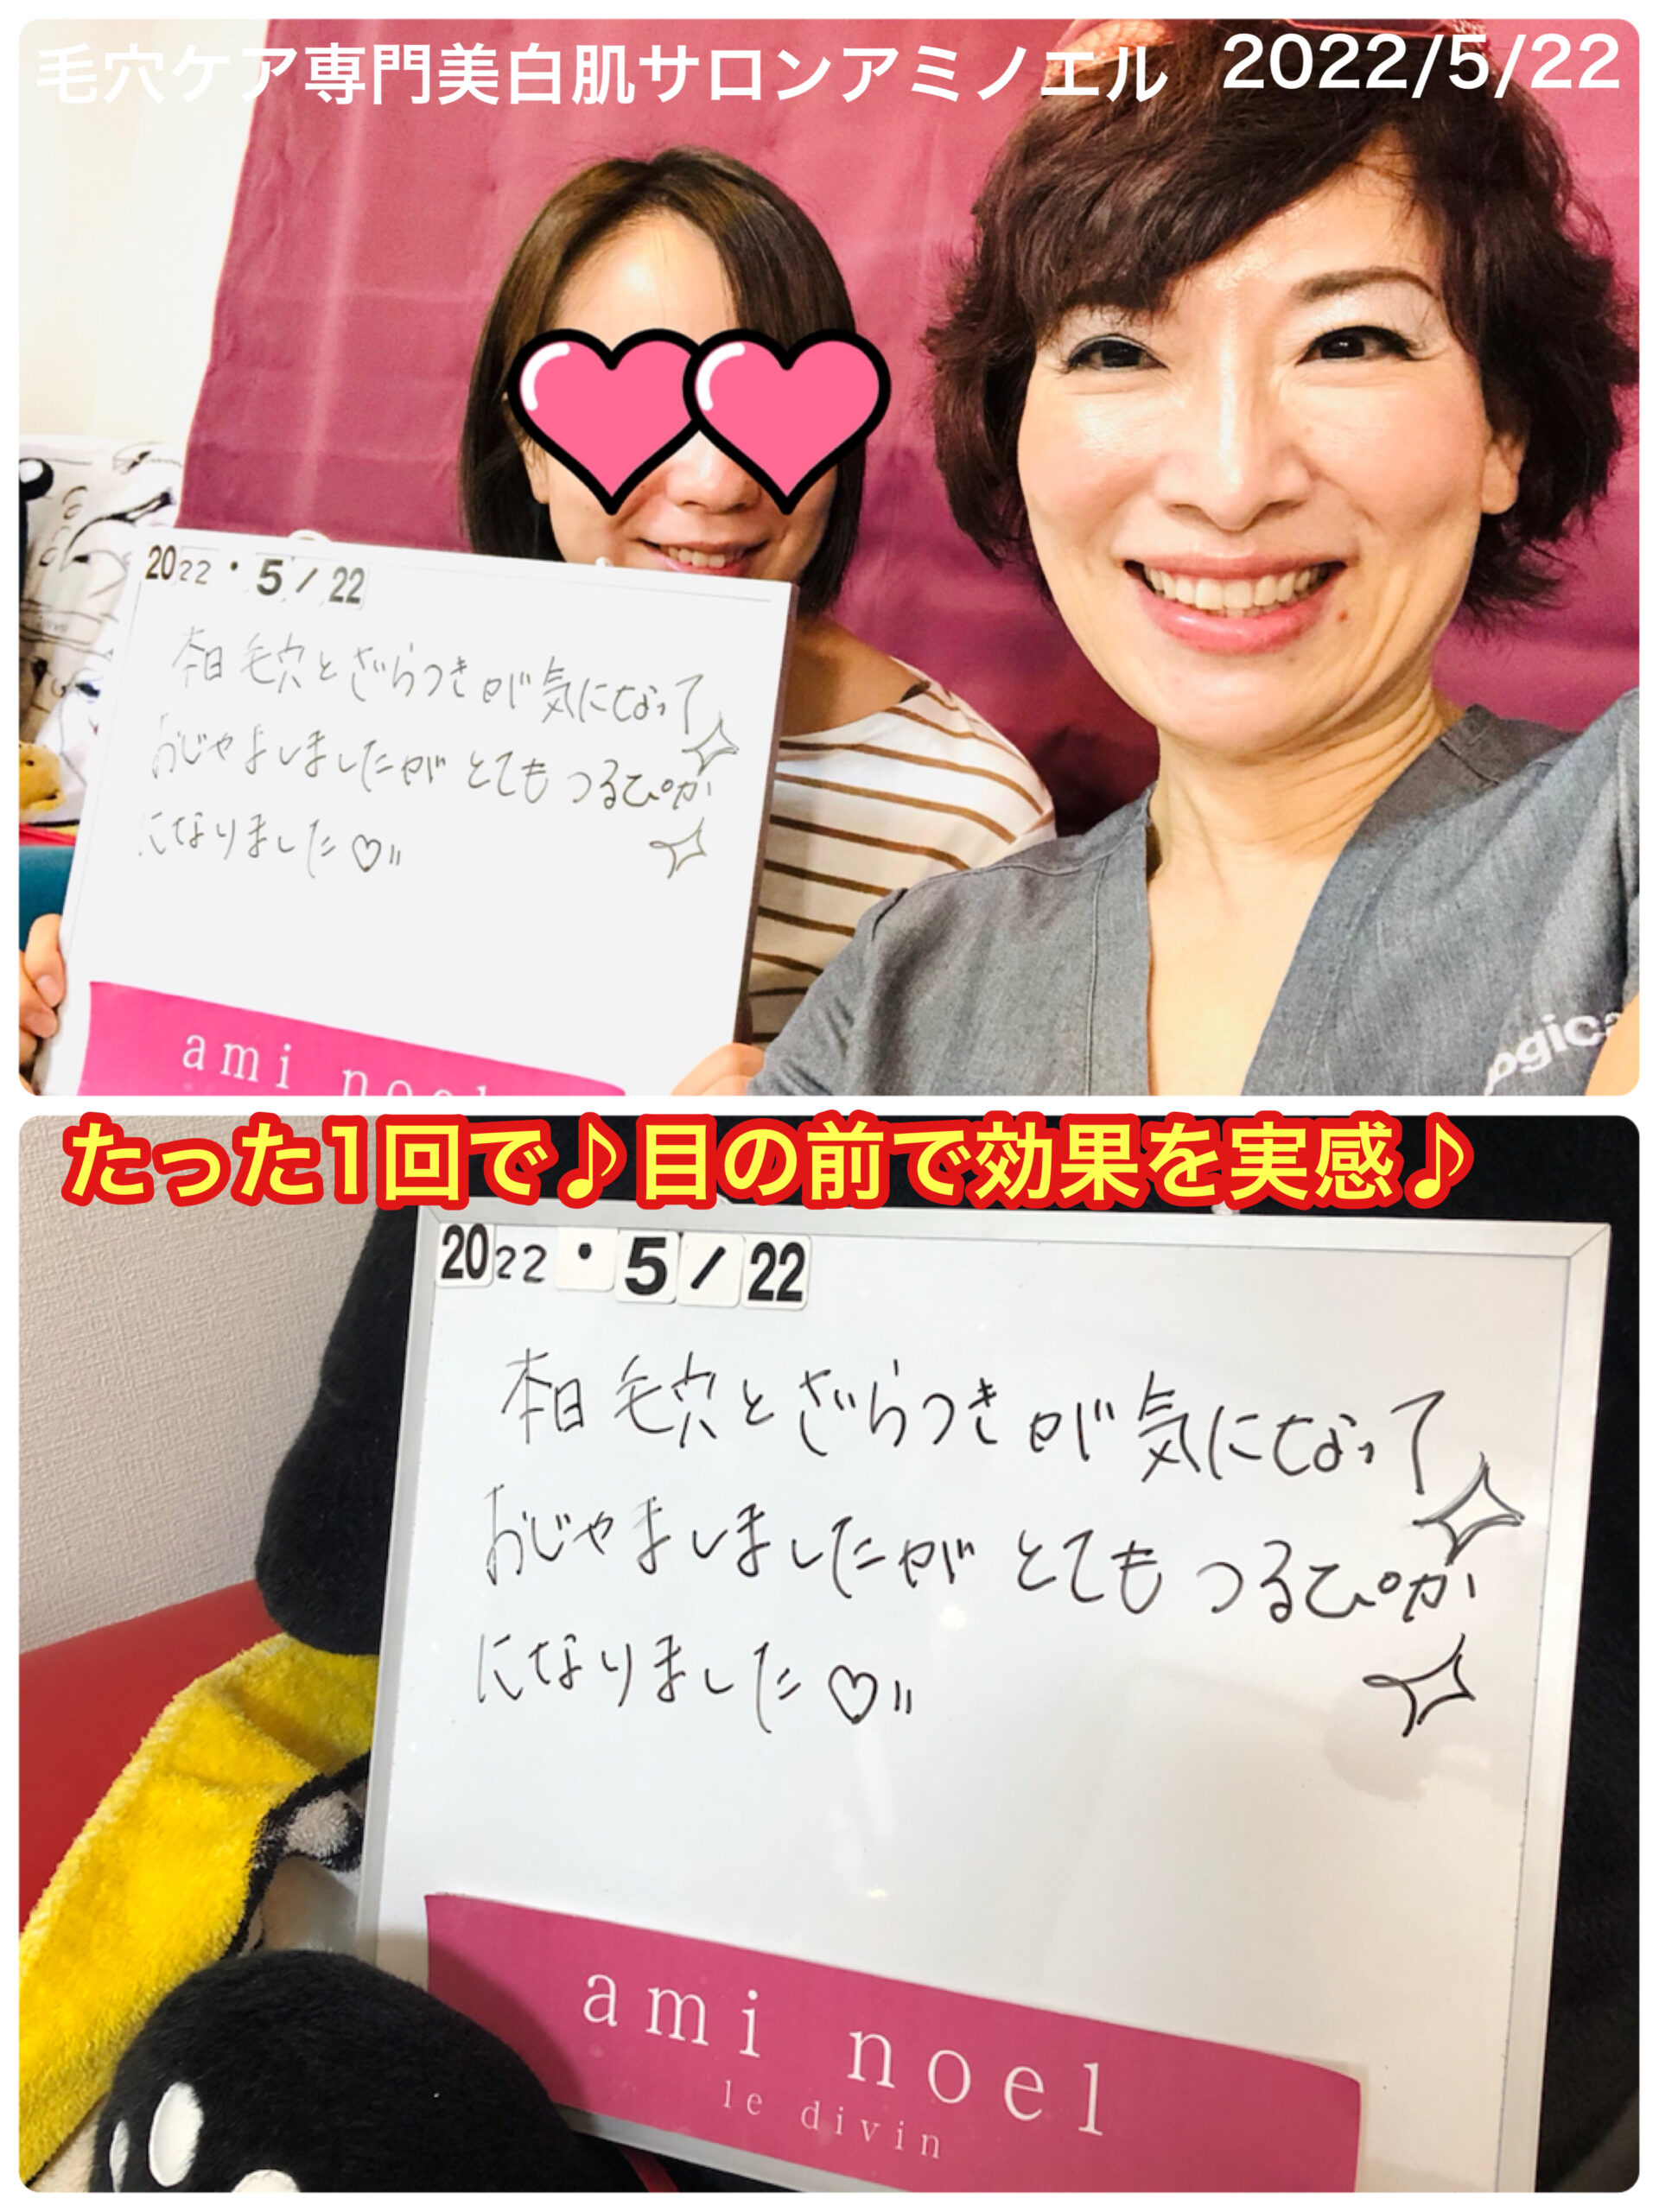 毛穴ケア専門美白肌サロンアミノエル 2022/5/22
2022・5/22
本日毛穴とざらつきが気になって
おじゃましましたがとてもつるぴか
になりました♡
ami noel
ogica
たった1回で♪目の前で効果を実感♪
2022・5/22
本日毛穴とざらつきが気になって
おじゃましましたがとてもつるぴか
になりました♡
ami noel
le divin